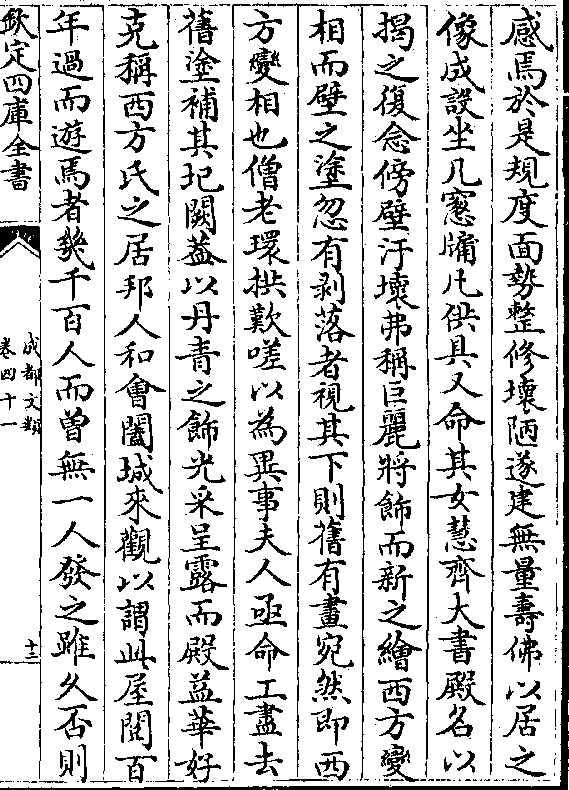 感焉於是規度面勢整修壞陋遂建無量壽佛以居之
像成設坐几窻牖凢供具又命其女慧齊大書殿名以
揭之復念傍壁汙壞弗稱巨麗將飾而新之繪西方變
相而壁之塗忽有剥落者視其下則舊有畫宛然即西
方變相也僧老環拱歎嗟以為異事夫人亟命工盡去
舊塗補其圮闕葢以丹青之飾光采呈露而殿益華好
克稱西方氏之居邦人和㑹闔城來觀以謂此屋閲百
年過而遊焉者幾千百人而曽無一人發之雖久否則
欽定四庫全書
成都文類
卷四十一
十三